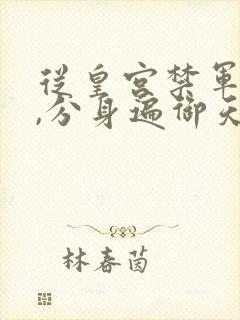 從皇宮禁軍
,分身遍御天
林春茵